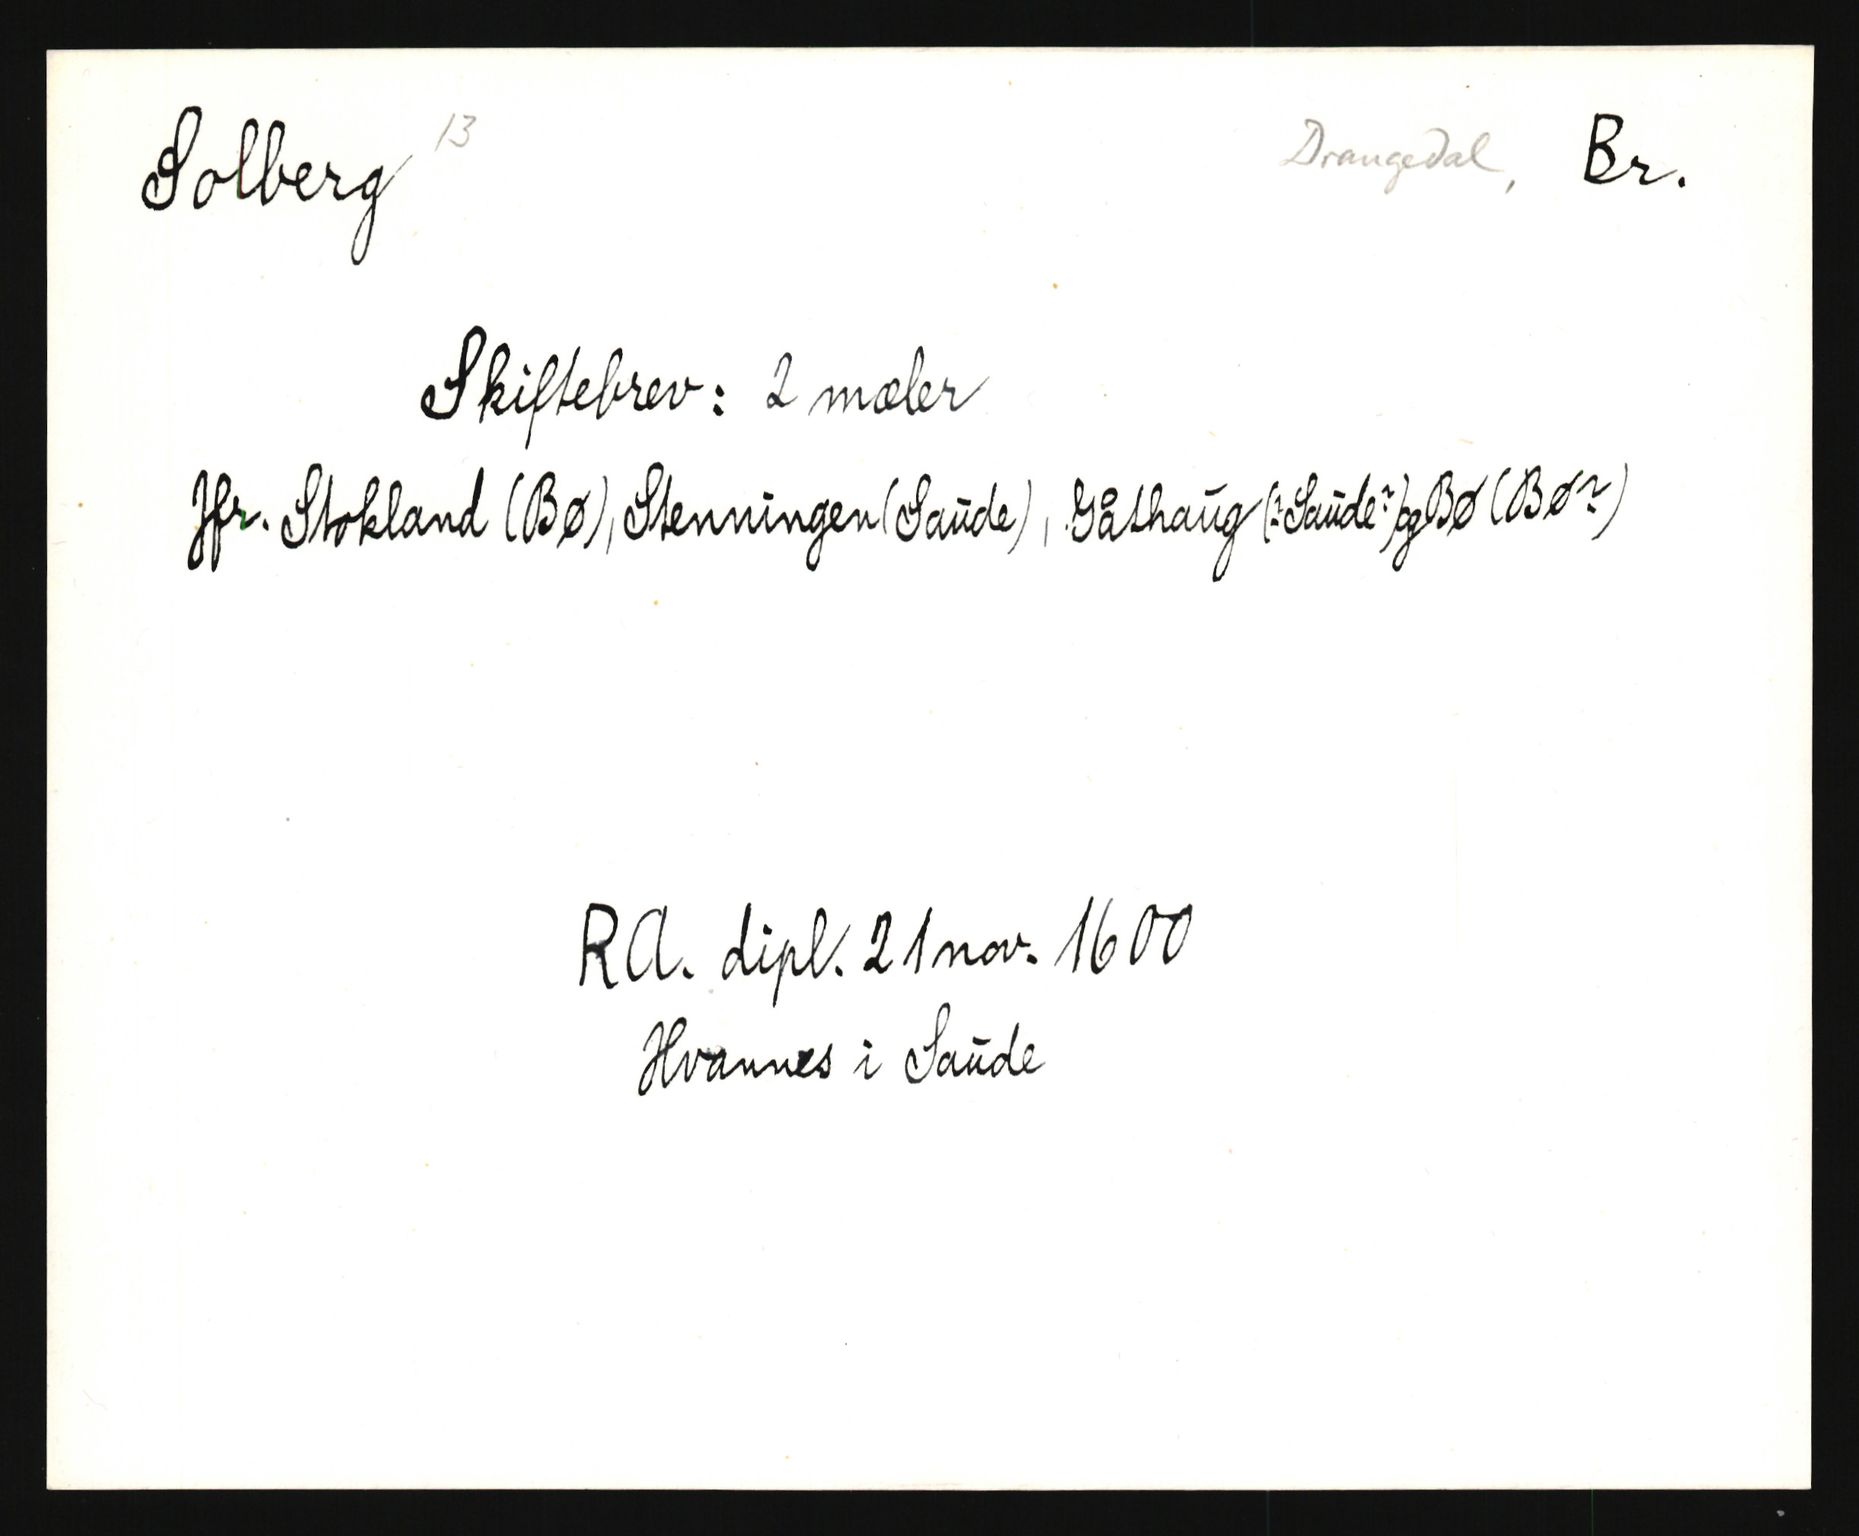 Solberg 13 Drangedal, Br.
Skiftebrev: 2 mæler
Jfr. Stokland (Bø), Stenningen (Saude), Gåthaug (?Saude?) og Bø (Bø?)
RA. dipl. 21 nov. 1600
Hvannes i Saude